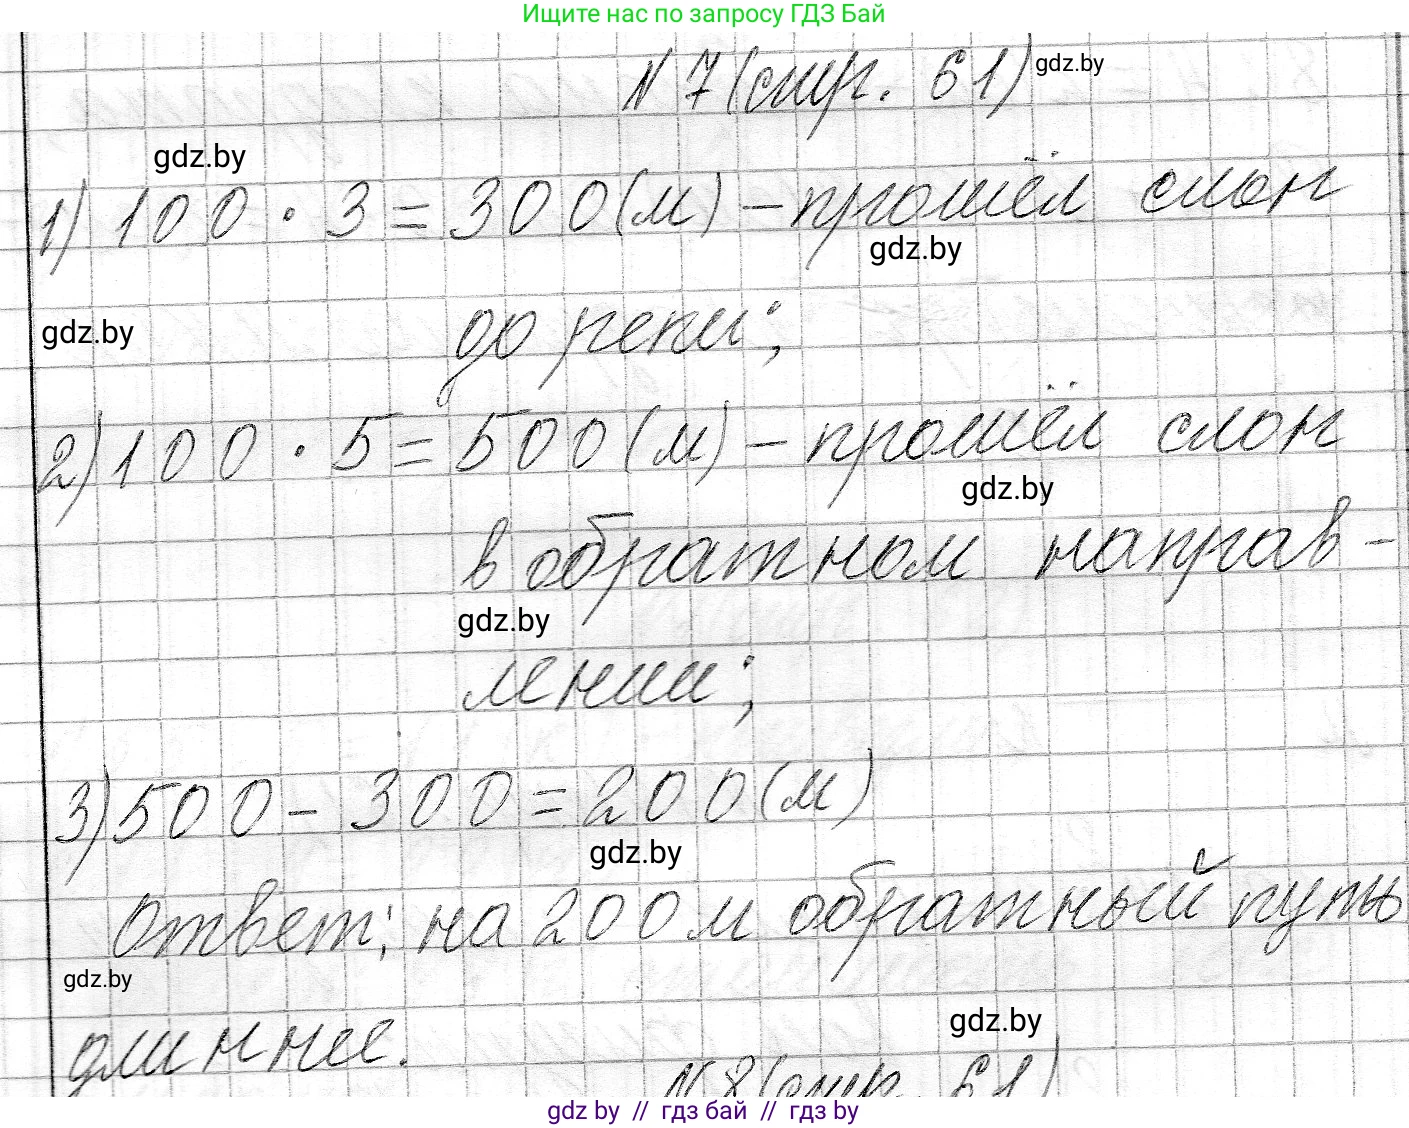 Ищите нас по запросу ГДЗ Бай
N 7 (стр. 61) gdz.by
gdz.by
1) 100 · 3 = 300 (м) – прошёл слон
gdz.by
до реки;
gdz.by
2) 100 · 5 = 500 (м) – прошёл слон
gdz.by
в обратном направ-
gdz.by
лении;
3) 500 - 300 = 200 (м)
gdz.by
Ответ: на 200 м обратный путь
gdz.by
длиннее.
gdz.by
N 8 (стр. 61)
gdz by // гдз бай // гдз by